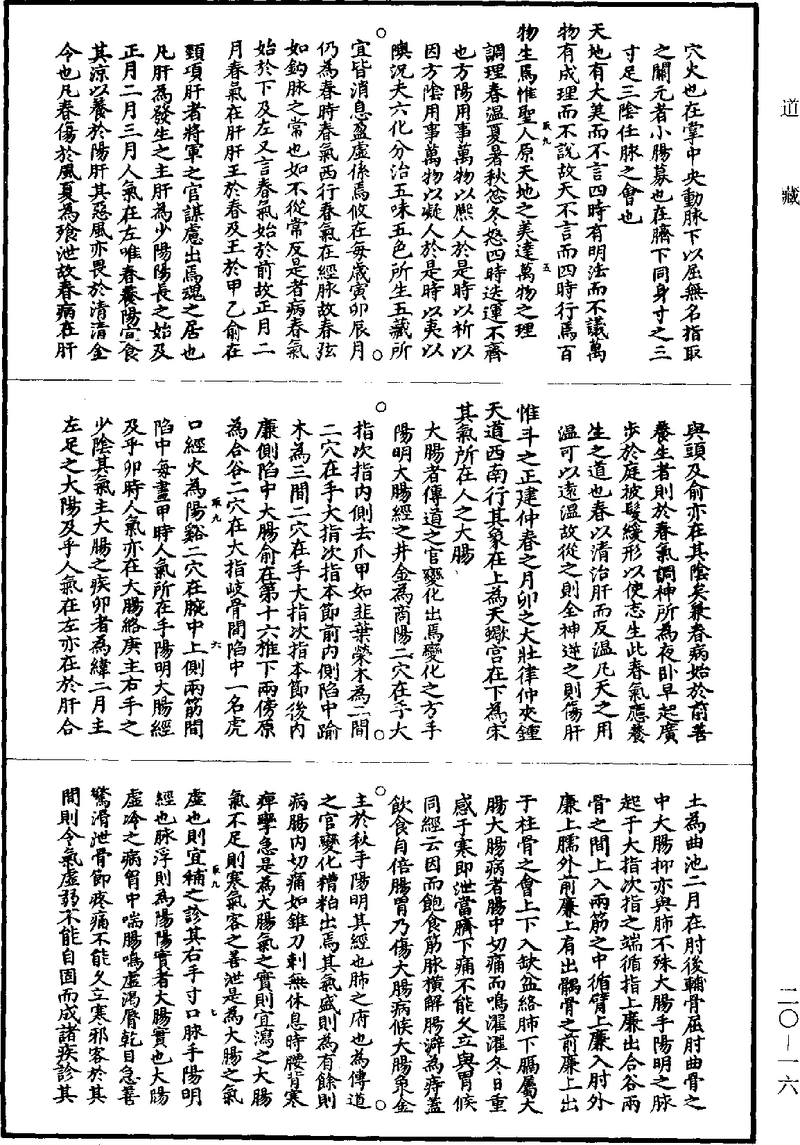 道藏
二〇-一六
穴火也在掌中央動脉下以屈無名指取
之關元者小腸募也在臍下同身寸之三
寸足三陰任脉之會也
天地有大美而不言四時有明法而不議萬
物有成理而不説故天不言而四時行焉百
物生焉惟聖人原天地之美達萬物之理
取九
五
調理春溫夏暑秋忿冬怒四時迭運不齊
也方陽用事萬物以熈人於是時以祈以
因方陰用事萬物以凝人於是時以夷以
隩況夫六化分治五味五色所生五藏所
宜皆消息盈虚係焉攸在每歳寅卯辰月
仍為春時春氣西行春氣在經脉故春弦
如鈎脉之常也如不從常反是者病春氣
始於下及左又言春氣始於前故正月二
月春氣在肝肝王於春及王於甲乙俞在
頸項肝者將軍之官謀慮出焉魂之居也
凡肝為發生之主肝為少陽陽長之始及
正月二月三月人氣在左唯春養陽宣食
其涼以養於陽肝其惡風亦畏於清清金
令也凡春傷於風夏為飱泄故春病在肝
與頭及俞亦在其陰矣兼春病始於前善
養生者則於春氣調神所為夜卧早起廣
歩於庭被髮緩形以使志生此春氣應養
生之道也春以清治肝而反温凡天之用
温可以遠温故從之則全神逆之則傷肝
惟斗之正建仲春之月卯之大壯律仲夾鍾
天道西南行其象在上為天蠍宫在下為宋
其氣所在人之大腸
大腸者傳道之官變化出焉變化之方手
陽明大腸經之井金為商陽二穴在手大
指次指内側去爪甲如韭葉榮木為二間
二穴在手大指次指本節前内側陷中踰
木為三間二穴在手大指次指本節後内
廉側陷中大腸俞在第十六椎下兩傍原
為合谷二穴在大指歧骨間陷中一名虎
取九
六
口經火為陽谿二穴在腕中上側兩筋間
陷中每晝甲時人氣所在手陽明大腸經
及乎卯時人氣亦在大腸絡庚主右手之
少陰其氣主大腸之疾卯者為緯二月主
左足之大陽及乎人氣在左亦在於肝合
土為曲池二月在肘後輔骨屈肘曲骨之
中大腸抑亦與肺不殊大腸手陽明之脉
起于大指次指之端循指上廉出合谷兩
骨之間上入兩筋之中循臂上廉入肘外
廉上臑外前廉上肩出髃骨之前廉上出
于柱骨之會上下入缺盆絡肺下膈屬大
腸大腸病者腸中切痛而鳴濯濯冬日重
感于寒即泄當臍下痛不能久立與胃候
同經云因而飽食筋脉横解腸澼為痔蓋
飲食自倍腸胃乃傷大腸病候大腸象金
主於秋手陽明其經也肺之府也為傳道
之官變化糟粕出焉其氣盛則為有餘則
病腸内切痛如錐刀刺無休息時腰背寒
痺攣急是為大腸氣之實則宜瀉之大腸
氣不足則寒氣客之善泄是為大腸之氣
取九
七
虚也則宜補之診其右手寸口脉手陽明
經也脉浮則為陽陽實者大腸實也大陽
虚冷之病胷中喘腸鳴虚渴脣乾目急善
驚滑泄骨節疼痛不能久立寒邪客於其
間則令氣虚弱不能自固而成諸疾診其